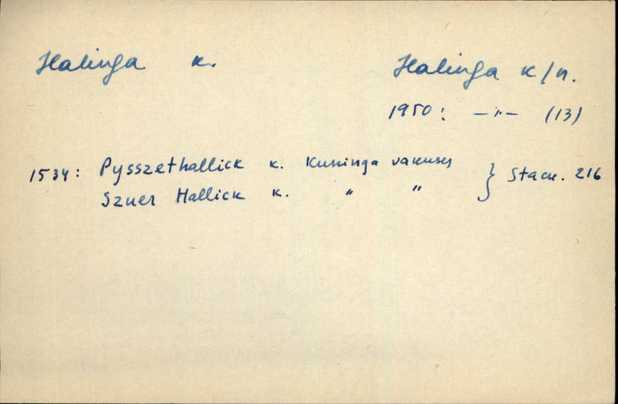 Halinga k. Halinga k/n.
1950: —"— (13)
1534: Pysszethallick k. Kuninga vakuses } Stack. 216
Szuer Hallick k. " "